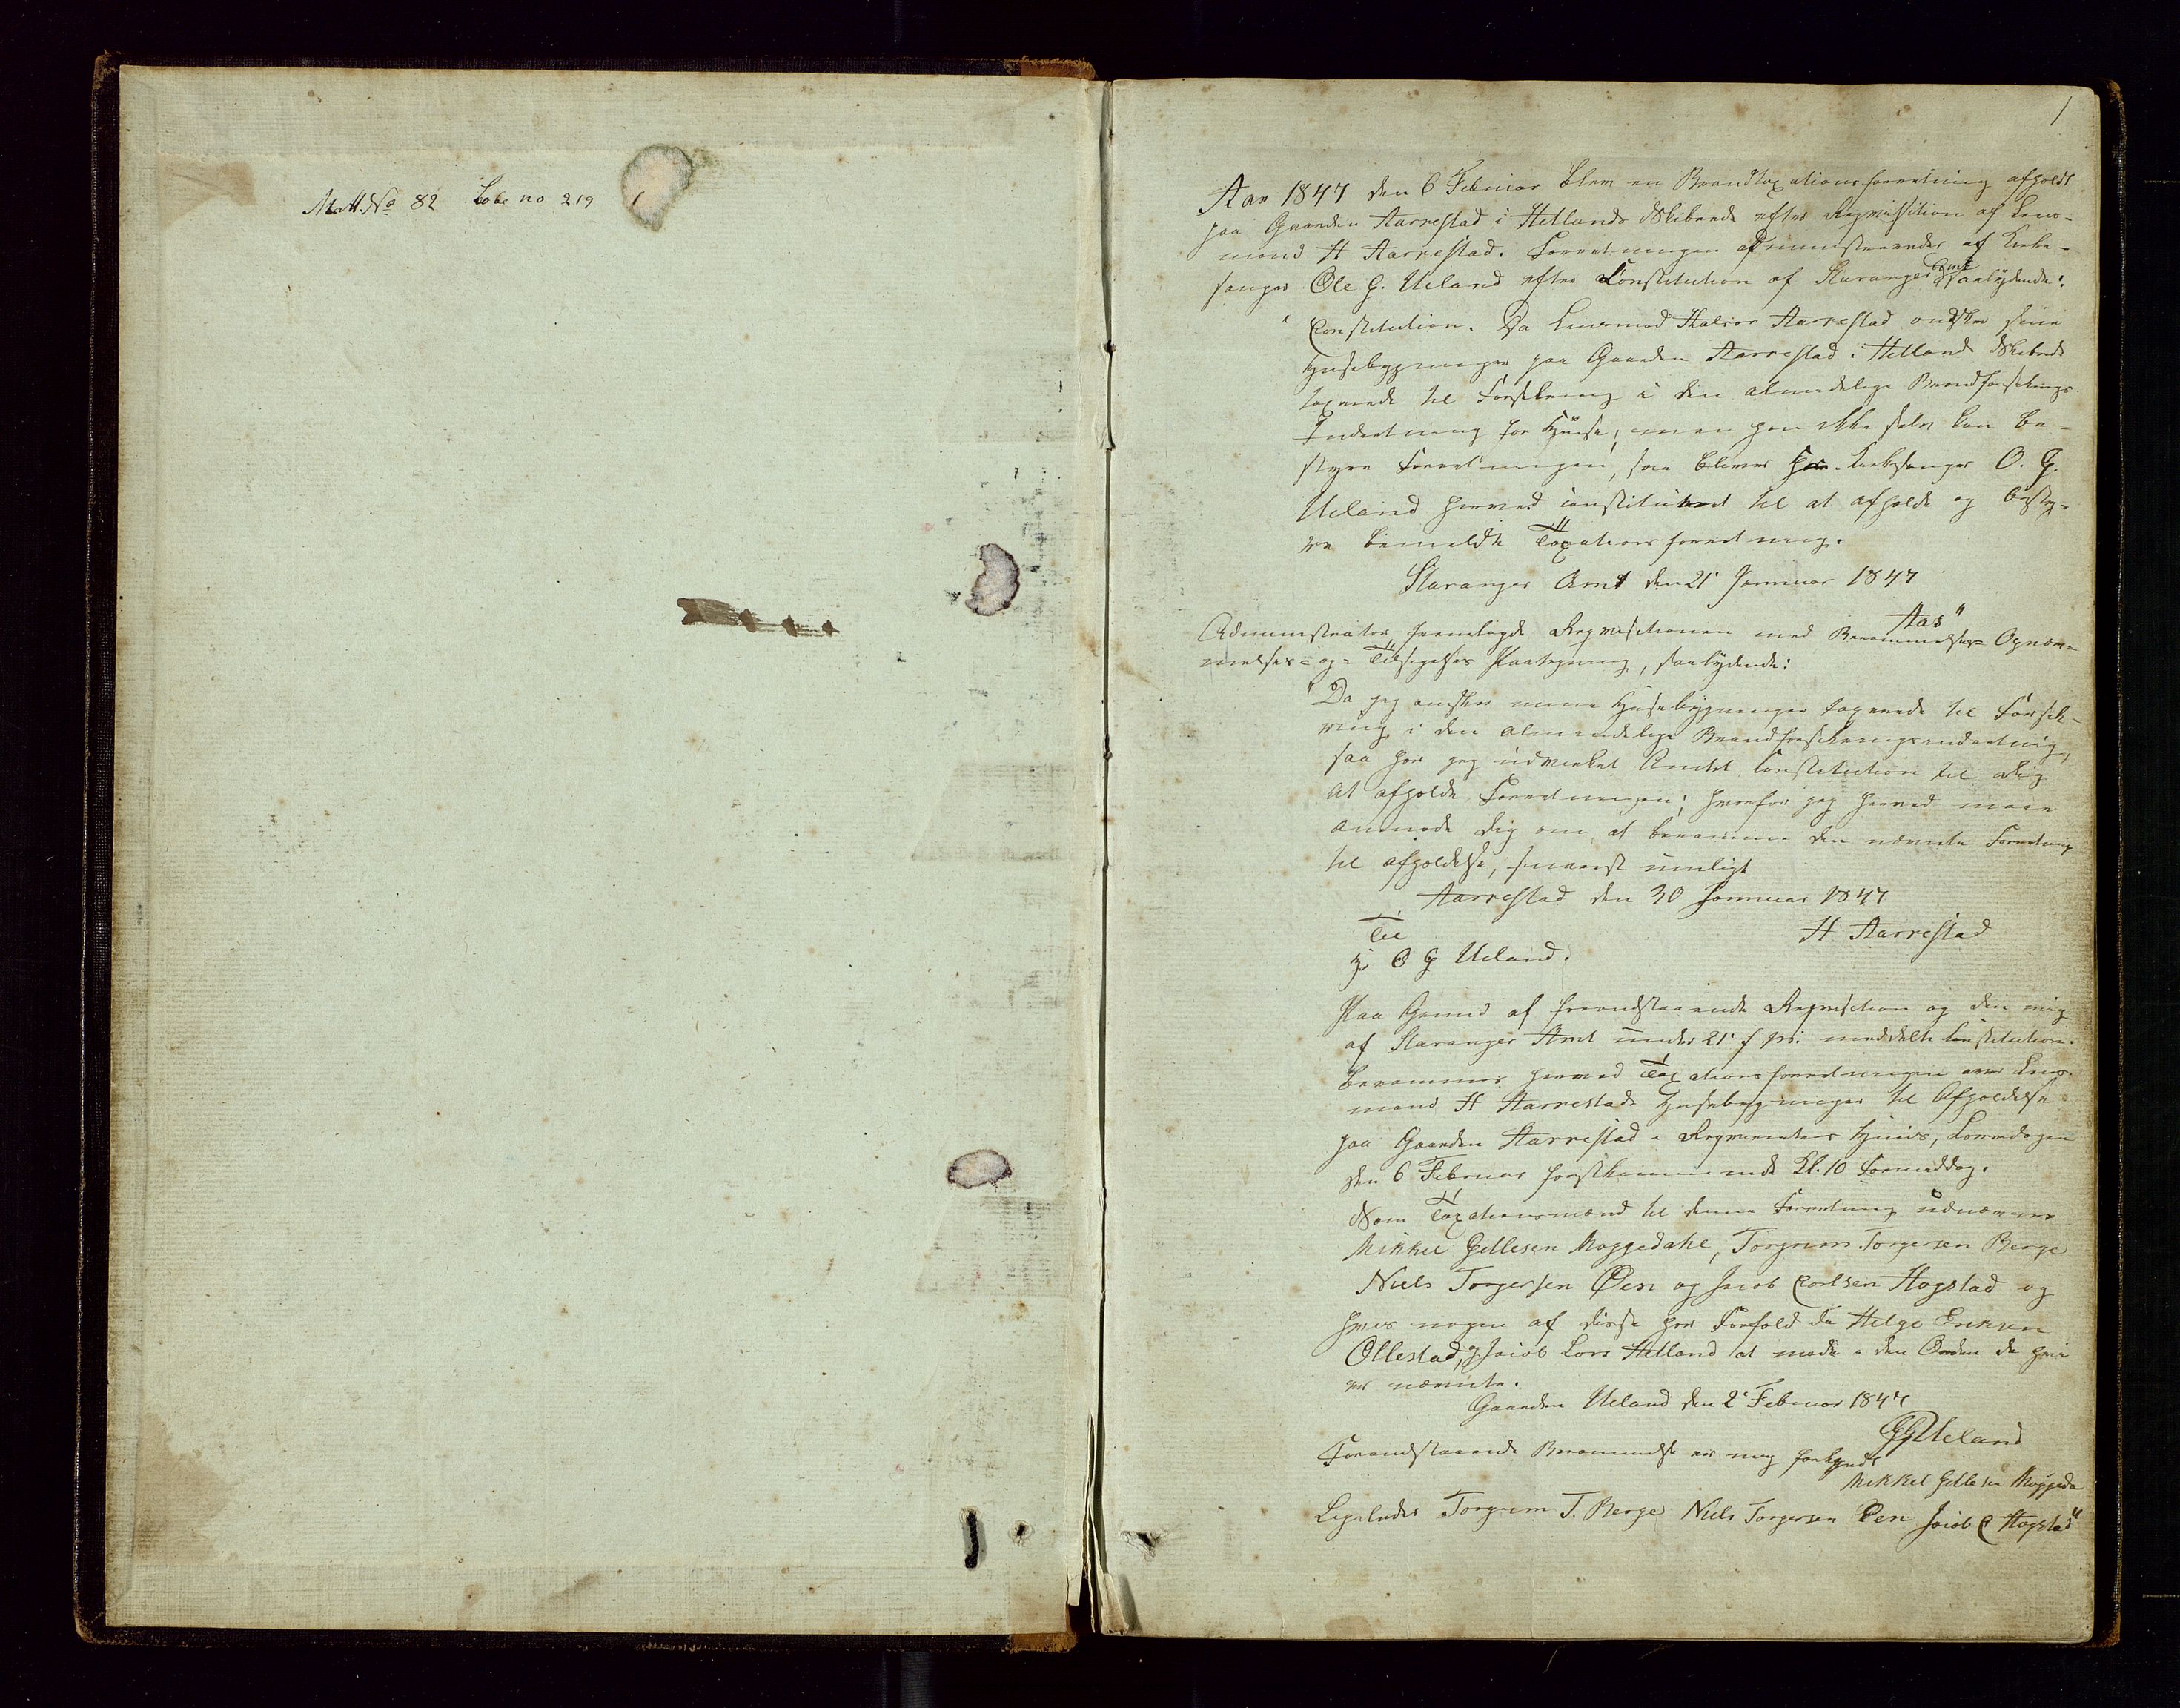 Matt. No 82 Løbe no 219
1
Aar 1847 den 6 Februar blev en Brandtaxationsforretning afholdt
paa Gaarden Aarrestad i Hetlands Skibrede efter Requisition af Lens-
mand H Aarrestad. Forretningen administreredes af Kirke-
sanger Ole G. Ueland efter Constitution af Stavanger Amt saalydende:
"Constitution. Da Lensmand Halvor Aarrestad ønsker sine
Huusebygninger paa Gaarden Aarrestad i Hetland Skibrede
taxerede til Forsikring i den almindelige Brandforsikrings-
Indretning for Huuse, men han ikke selv kan be-
styre Forretningen, saa bliver Hr. Kirkesanger O. G.
Ueland herved constitueret til at afholde og besty-
re bemeldte Taxationsforretning.
Stavanger Amt den 21 Januar 1847
Aas"
Administrator fremlagde Requisitionen med Berammelses- Opnæv-
nelses- og- Tilsigelses Paategning, saalydende:
"Da jeg ønsker mine Huusebygninger taxerede til Forsik-
ring i den almindelige Brandforsikringsindretning,
saa har jeg udvirket Amtets Constitution til Dig
at afholde Forretningen; hvorfor jeg herved maa
anmode Dig om at beramme den nævnte Forretning
til afholdelse, snarest muligt
Aarrestad den 30 Januar 1847
H. Aarrestad
Til
Hr O G Ueland.
Paa Grund af foranstaaende Requisition og den mig
af Stavanger Amt under 21 f. M. meddelte Constitution.
berammes herved Taxationsforretningen over Lens-
mand H Aarrestads Huusebygninger til Afholdelse
paa Gaarden Aarrestad i Requirentens Huus, Løverdagen
den 6 Februar førstkommende Kl. 10 Formiddag.
Som Taxationsmænd til denne Forretning udnævnes
Mikkel Gellesen Moggedahl, Torgrim Torgersen Berge
Niels Torgersen Øen og Jacob Carlsen Hogstad og
hvis nogen af disse har Forfald da Helge Eriksen
Ollestad, Jacob Lars Hetland at møde i den Orden de her
er nævnte.
Gaarden Ueland den 2 Februar 1847
OGUeland
Foranstaaende Berammelse er mig forkyndt
Mikkel Gellesen Moggeda
Ligeledes Torgrim T. Berge Niels Torgersen Øen Jacob C Hogstad"